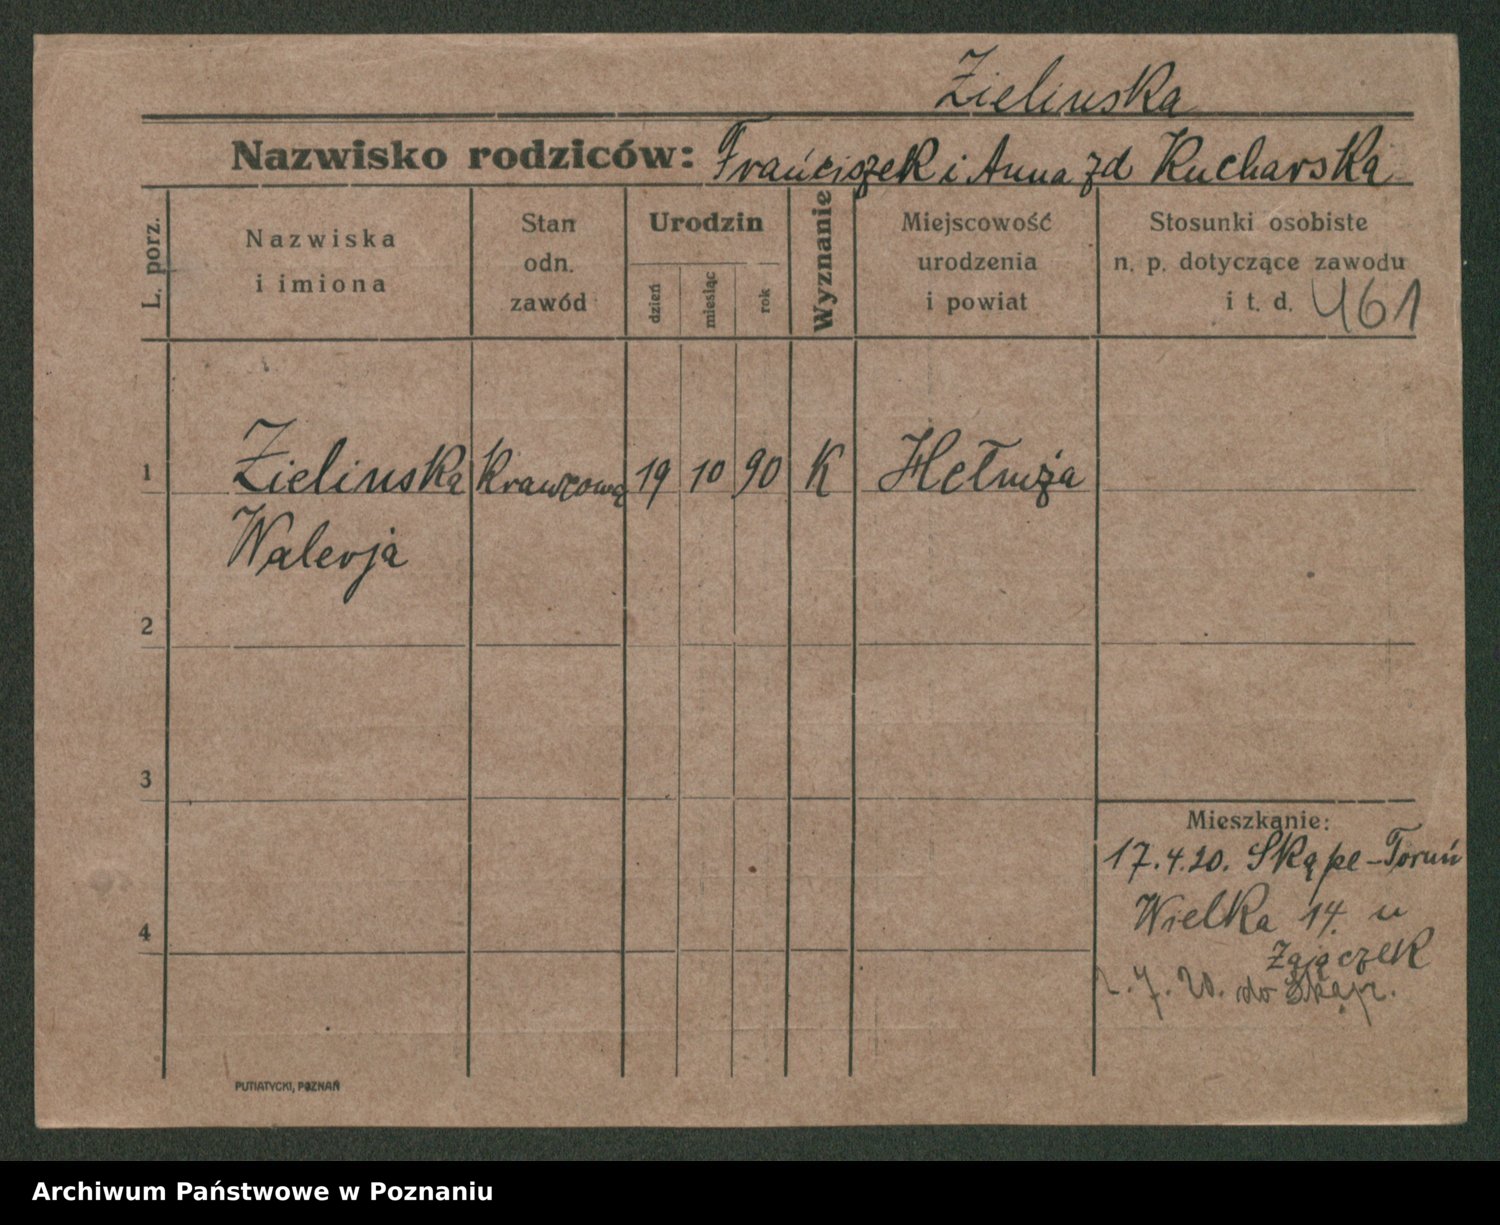 Zielinska
Nazwisko rodziców: Frańciszek i Anna zd Kucharska
L. porz.
Nazwiska
i imiona
Stan
odn.
zawód
Urodzin
dzień
miesiąc
rok
Wyznanie
Miejscowość
urodzenia
i powiat
Stosunki osobiste
n. p. dotyczące zawodu
i t. d. 461
1 Zielinska Krawcową 19 10 90 K Hełmża
Walerja
2
3
4
Mieszkanie:
17.4.20. Skąpe - Toruń
Wielka 14. u
Zajączek
2.7.20. do Skąp.
PUTIATYCKI, POZNAŃ
Archiwum Państwowe w Poznaniu